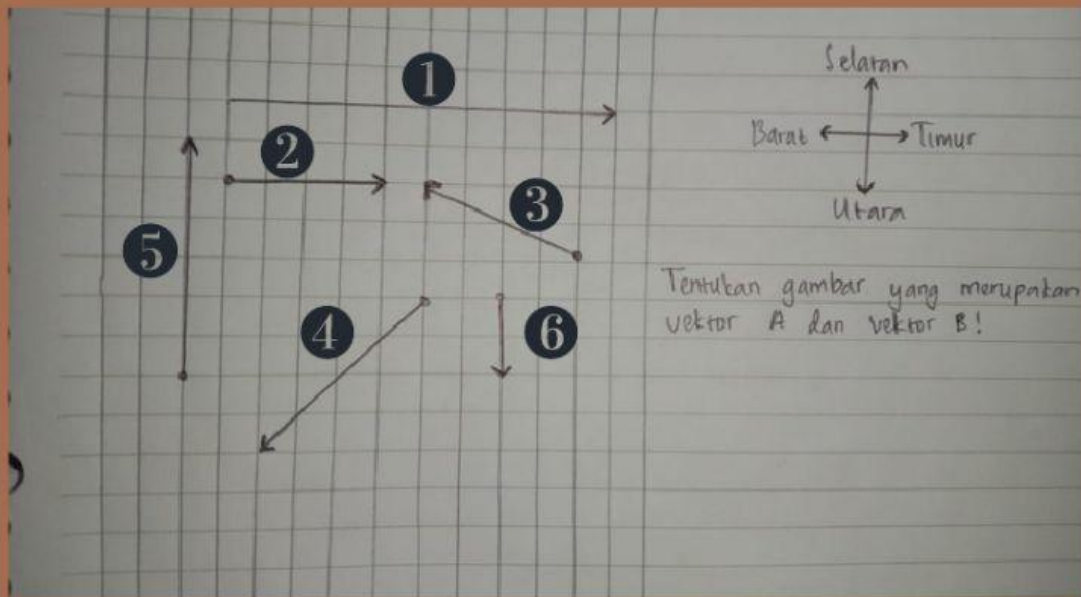 1
Selatan
2
Barat
Timur
3
Utara
5
Tentukan gambar yang merupakan
4
6
vektor A dan vektor B!